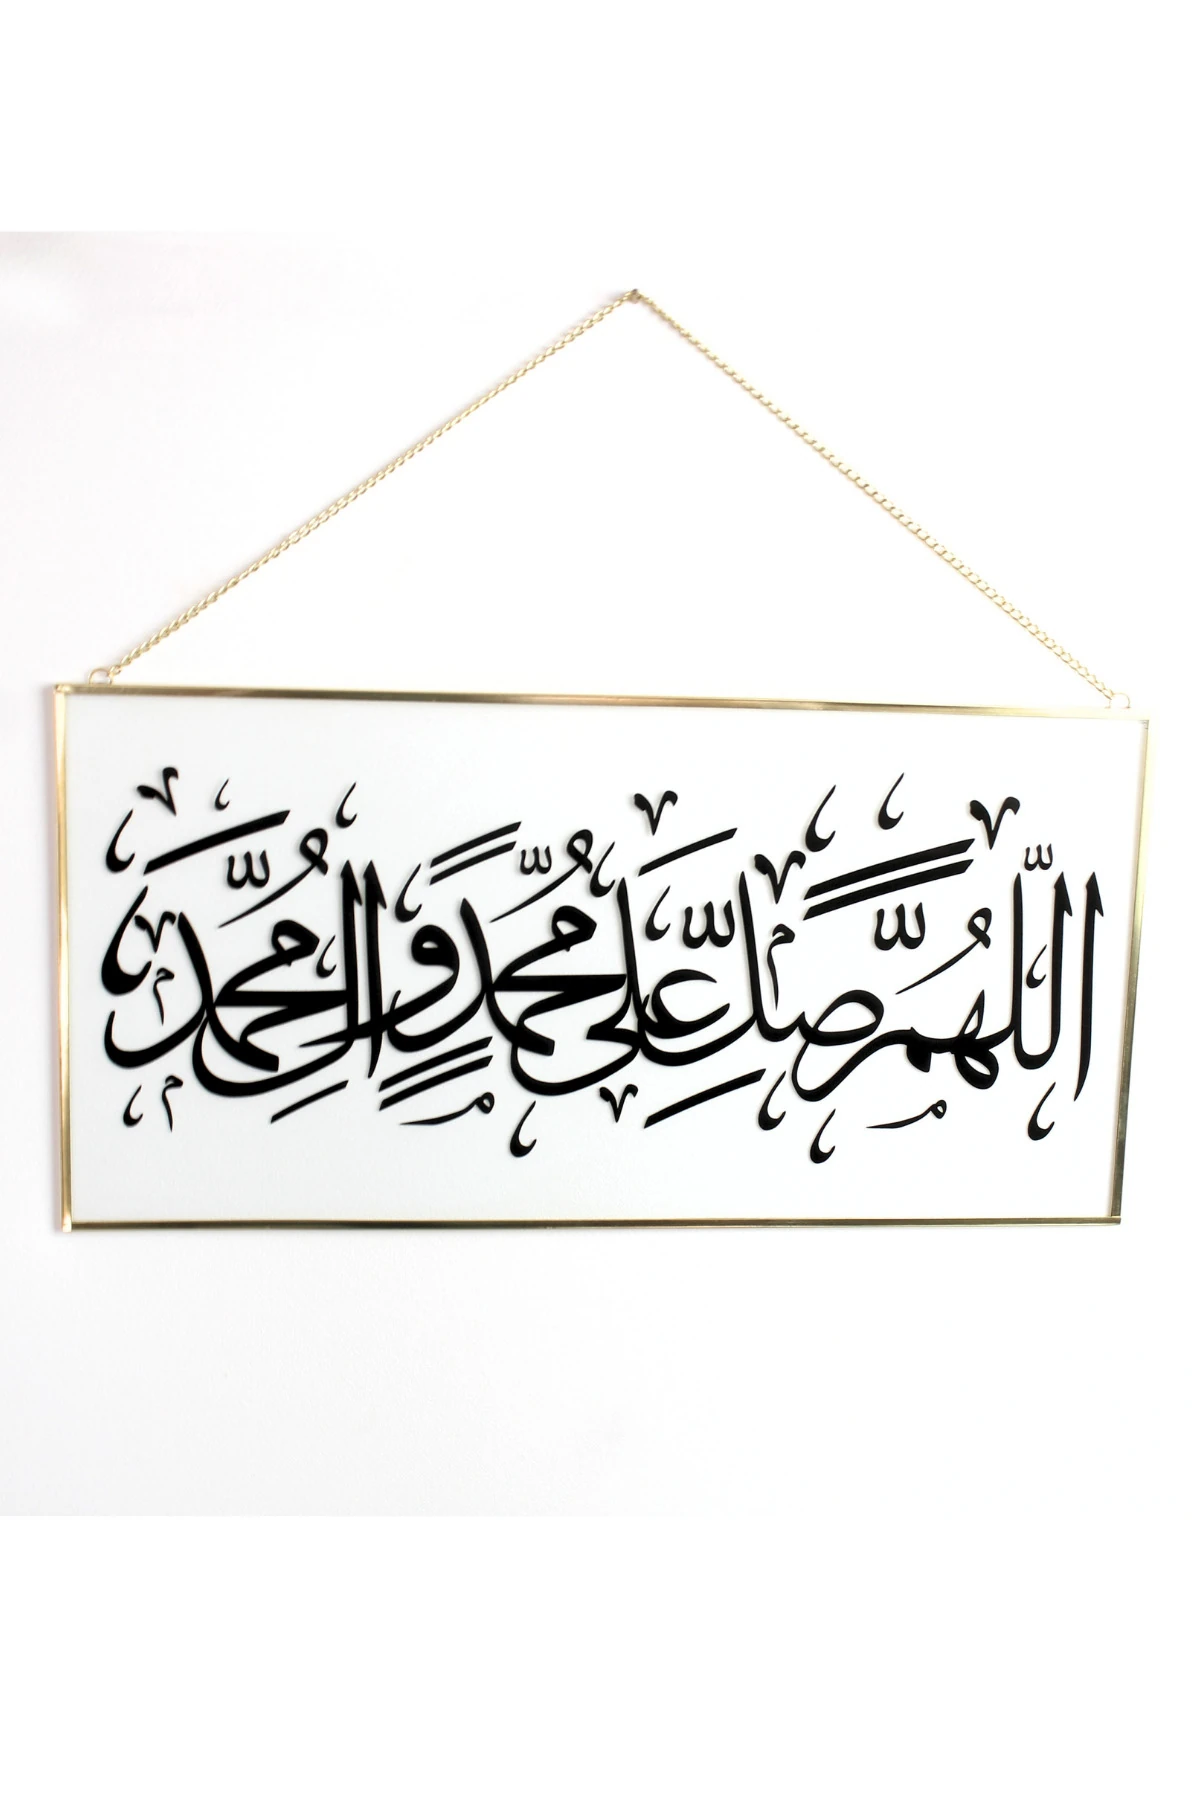 اللّهُمَّ صَلِّ عَلَى مُحَمَّدٍ وَالِ مُحَمَّد